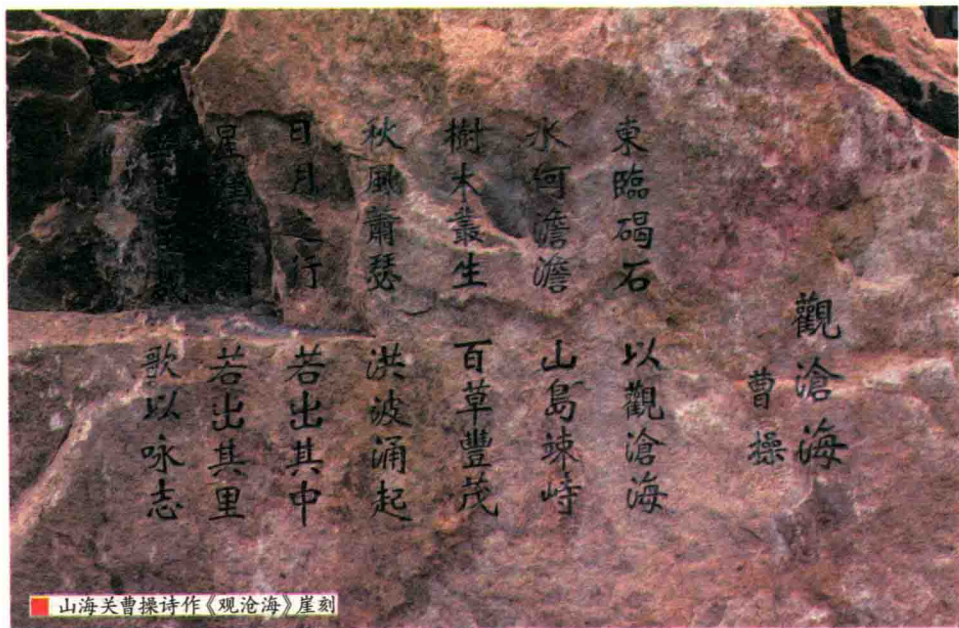 觀滄海
曹操
東臨碣石 以觀滄海
水何澹澹 山島竦峙
樹木叢生 百草豐茂
秋風蕭瑟 洪波涌起
日月之行 若出其中
星漢 若出其里
歌以咏志
山海关曹操诗作《观沧海》崖刻